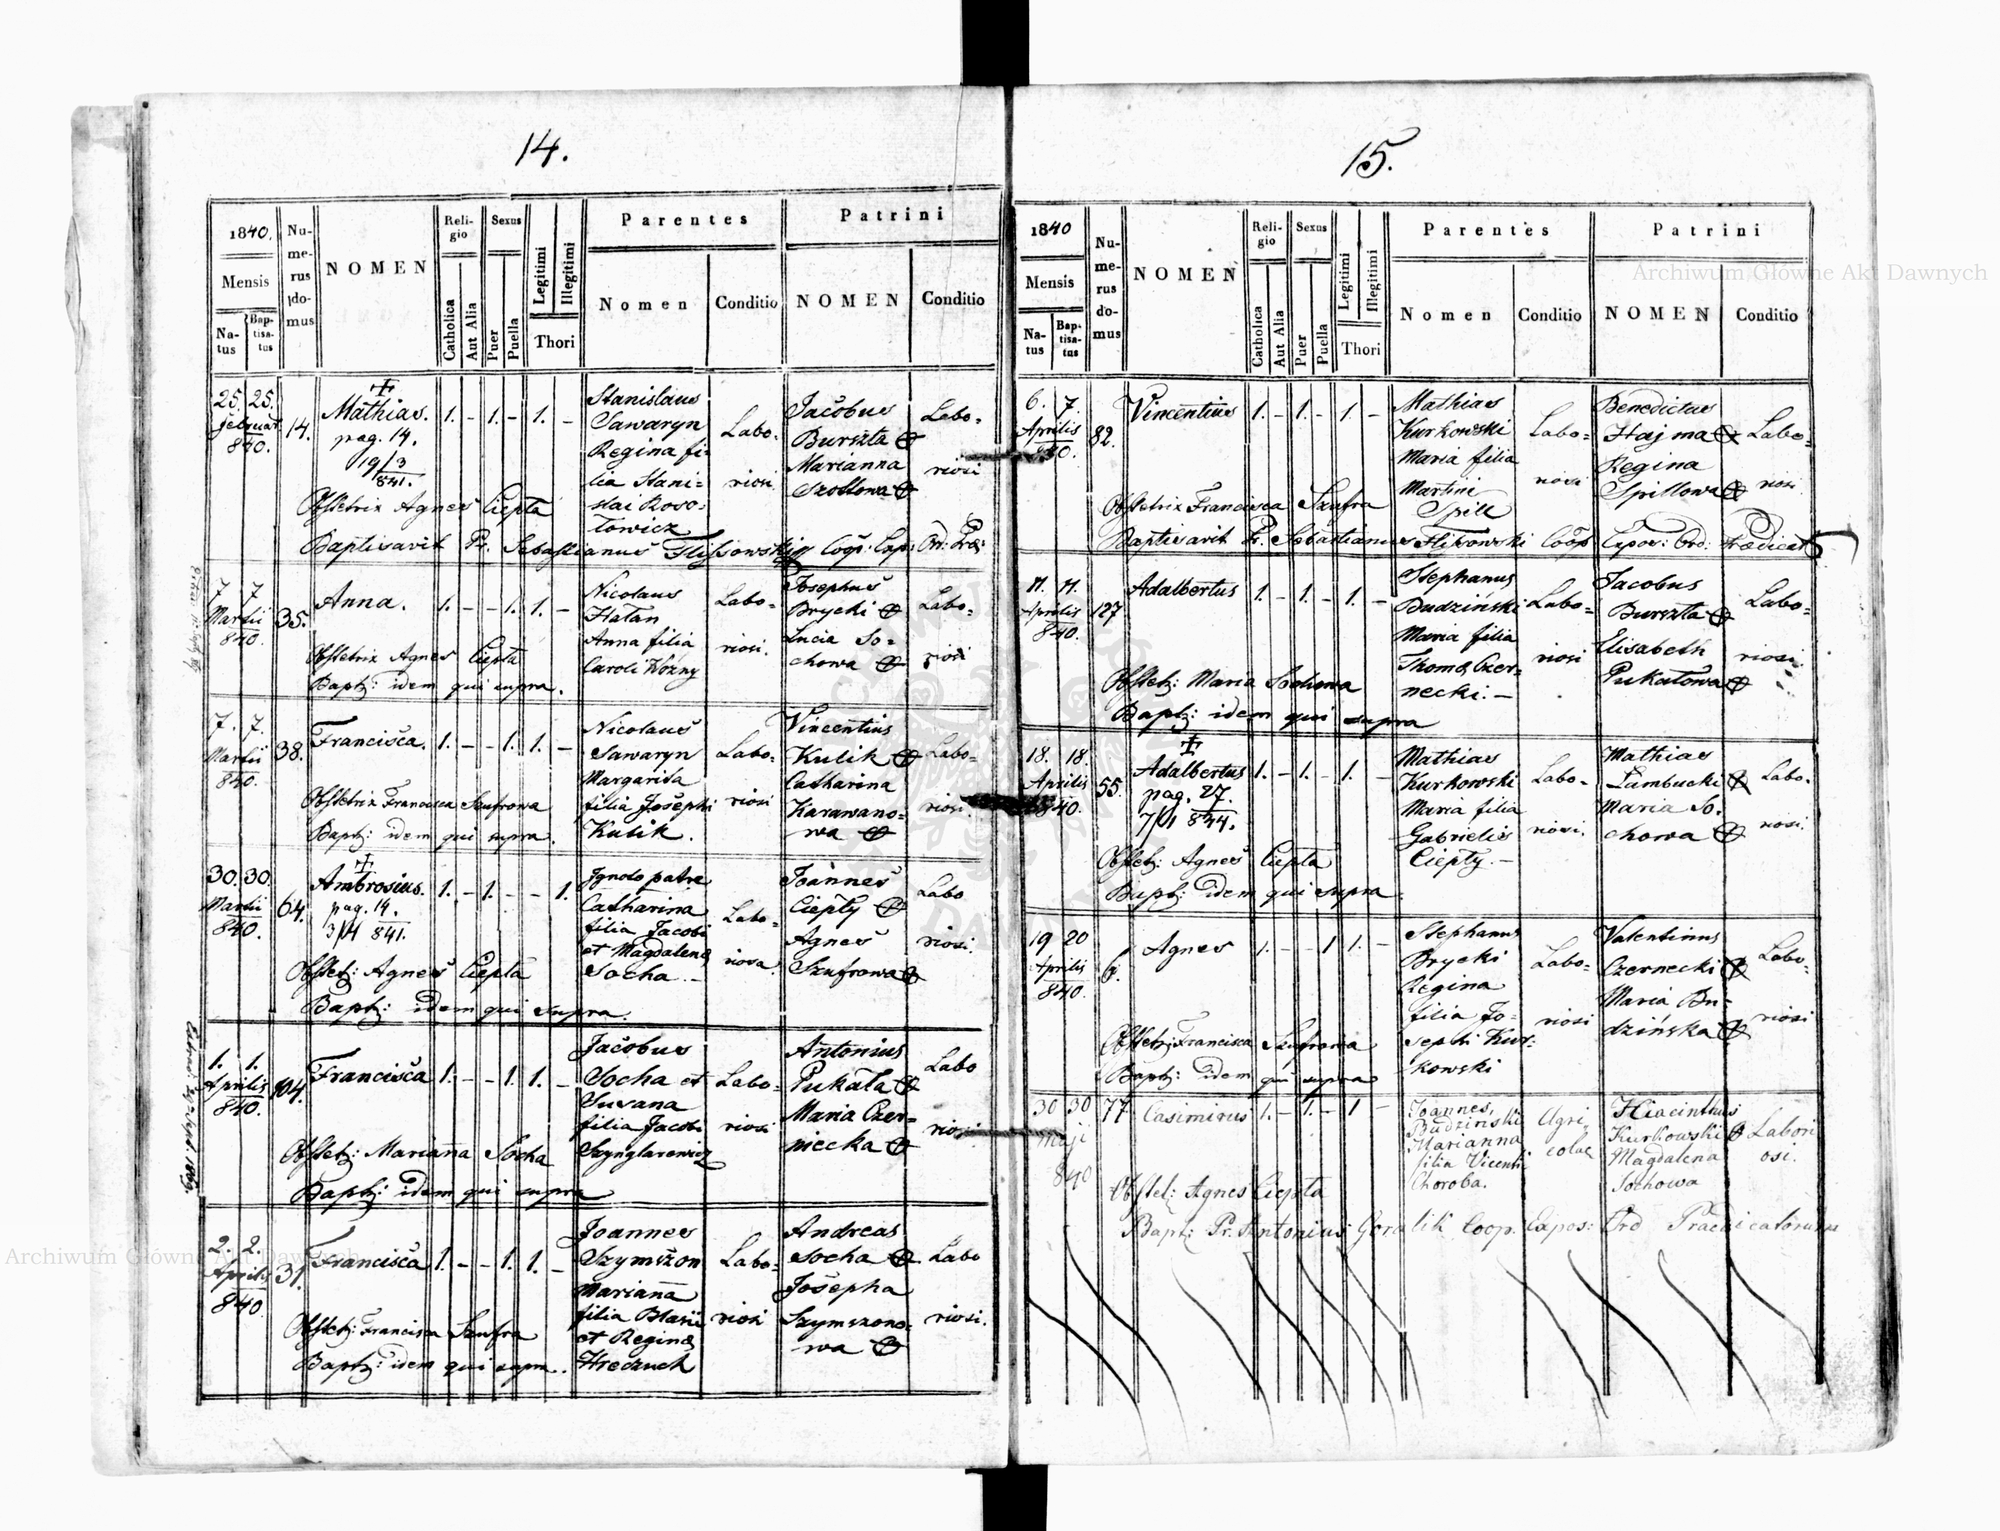 14.
1840.
Mensis
Na-
tus
Bap-
tisa-
tus
Nu-
me-
rus
do-
mus
NOMEN
Reli-
gio
Catholica
Aut Alia
Sexus
Puer
Puella
Legitimi
Illegitimi
Thori
Parentes
Nomen
Conditio
Patrini
NOMEN
Conditio
25. 25.
Februar
840.
14.
Mathias.
pag. 14.
19/3
841.
1. - 1. - 1. -
Stanislaus
Sawaryn
Regina fi-
lia Stani-
slai Roso-
towicz
Labo-
riosi
Jacobus
Burszta
Marianna
Szottowa
Labo-
riosi
Obstetrix Agnes Ciepta
Baptisavit Pr. Sebastianus
7 7
Martii
840.
35.
Anna.
1. - - 1. 1. -
Nicolaus
Hatan
Anna filia
Caroli Wozny
Labo-
riosi.
Josephus
Brycki
Lucia So-
chowa
Labo-
riosi
Obstetrix Agnes Ciepta
Bapt: idem qui supra.
7. 7.
Martii
840.
38.
Francisca.
1. - - 1. 1. -
Nicolaus
Sawaryn
Margarita
filia Josephi
Kulik.
Labo-
riosi
Vincentius
Kulik
Catharina
Karawano-
wa
Labo-
riosi.
Obstetrix Francisca Szufrowa
Bapt: idem qui supra.
30. 30.
Martii
840.
64.
Ambrosius.
pag. 19.
841.
1. - 1. - - 1.
Ignoto patre
Catharina
filia Jacobi
et Magdalena
Socha -
Labo-
riosa.
Joannes
Ciepty
Agnes
Szufrowa
Labo
riosi.
Obstet: Agnes Ciepta
Bapt: idem qui supra.
1. 1.
Aprilis
840.
104.
Francisca
1. - - 1. 1. -
Jacobus
Socha et
Susana
filia Jacobi
Szynglarewicz
Labo-
riosi
Antonius
Pukata
Maria Czer-
niecka
Labo
riosi
Obstet: Marianna Socha
Bapt: idem qui supra
2. 2.
Aprilis
840
31.
Francisca
1. - - 1. 1. -
Joannes
Szymszon
Marianna
filia Blasii
et Regina
Hreczuch
Labo-
riosi
Andreas
Socha
Josepha
Szymszono-
wa
Labo
riosi.
Obstet: Francisca Szufra
Bapt: idem qui supra.
15.
1840
Mensis
Na-
tus
Bap-
tisa-
tus
Nu-
me-
rus
do-
mus
NOMEN
Reli-
gio
Catholica
Aut Alia
Sexus
Puer
Puella
Legitimi
Illegitimi
Thori
Parentes
Nomen
Conditio
Patrini
NOMEN
Conditio
6. 7.
Aprilis
840.
82.
Vincentius
1. - 1. - 1. -
Mathias
Kurkowski
Maria filia
Martini
Spill
Labo-
riosi
Benedictus
Hajma
Regina
Spillowa
Labo-
riosi
Obstetrix Francisca Szufra
Baptisavit Pr. Sebastianus
11. 11.
Aprilis
840.
127
Adalbertus
1. - 1. - 1. -
Stephanus
Budziński
Maria filia
Thoma Czer-
necki. -
Labo-
riosi
Jacobus
Burszta
Elisabeth
Pukatowa
Labo-
riosi.
Obstet: Maria Sochowa
Bapt: idem qui supra
18. 18.
Aprilis
840.
55.
Adalbertus
pag. 27.
844.
1. - 1. - 1. -
Mathias
Kurkowski
Maria filia
Gabrielis
Ciepty. -
Labo-
riosi.
Mathias
Lambucki
Maria So-
chowa
Labo-
riosi.
Obstet: Agnes Ciepta
Bapt: idem qui supra
19 20
Aprilis
840.
6.
Agnes
1. - - 1 1. -
Stephanus
Brycki
Regina
filia Jo-
sephi Kur-
kowski
Labo-
riosi
Valentinus
Czernecki
Maria Bu-
dzińska
Labo-
riosi
Obstet: Francisca Szufrowa
Bapt: idem qui supra
30 30
Maji
840
77
Casimirus
1. - 1. - 1 -
Joannes
Budzinski
Marianna
filia Vicenti
Choroba.
Agri-
colae
Hiacinthus
Kurkowski
Magdalena
Sochowa
Labori
osi.
Obstet: Agnes Ciepta
Bapt: Pr. Antonius Goralik Coop. Expos: Ord Praedicatorum
Archiwum Główne Akt Dawnych
Archiwum Główne Akt Dawnych